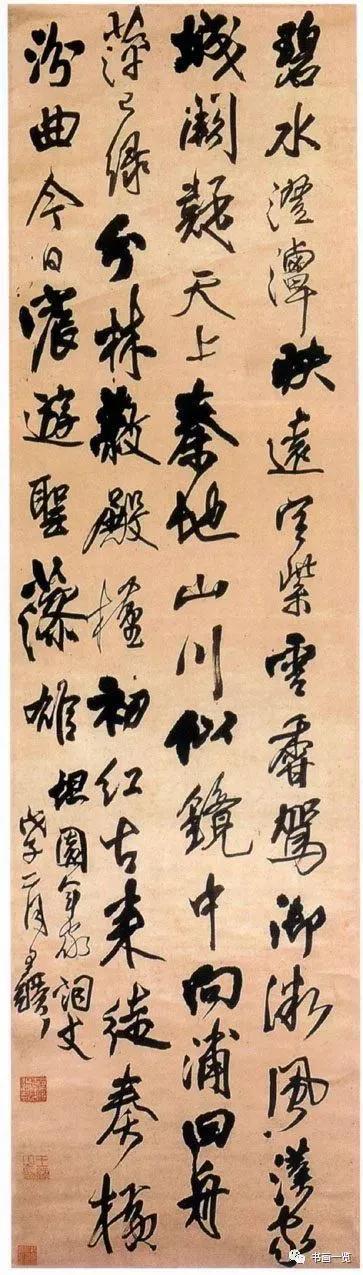 碧水澄潭映遠空紫雲香駕御微風漢家
城闕疑天上秦地山川似鏡中向浦回舟
萍已綠分林蔽殿槿初紅古來徒奏橫
汾曲今日宸遊聖藻雄坦園年家詞丈
戊子二月王鐸
书画一览